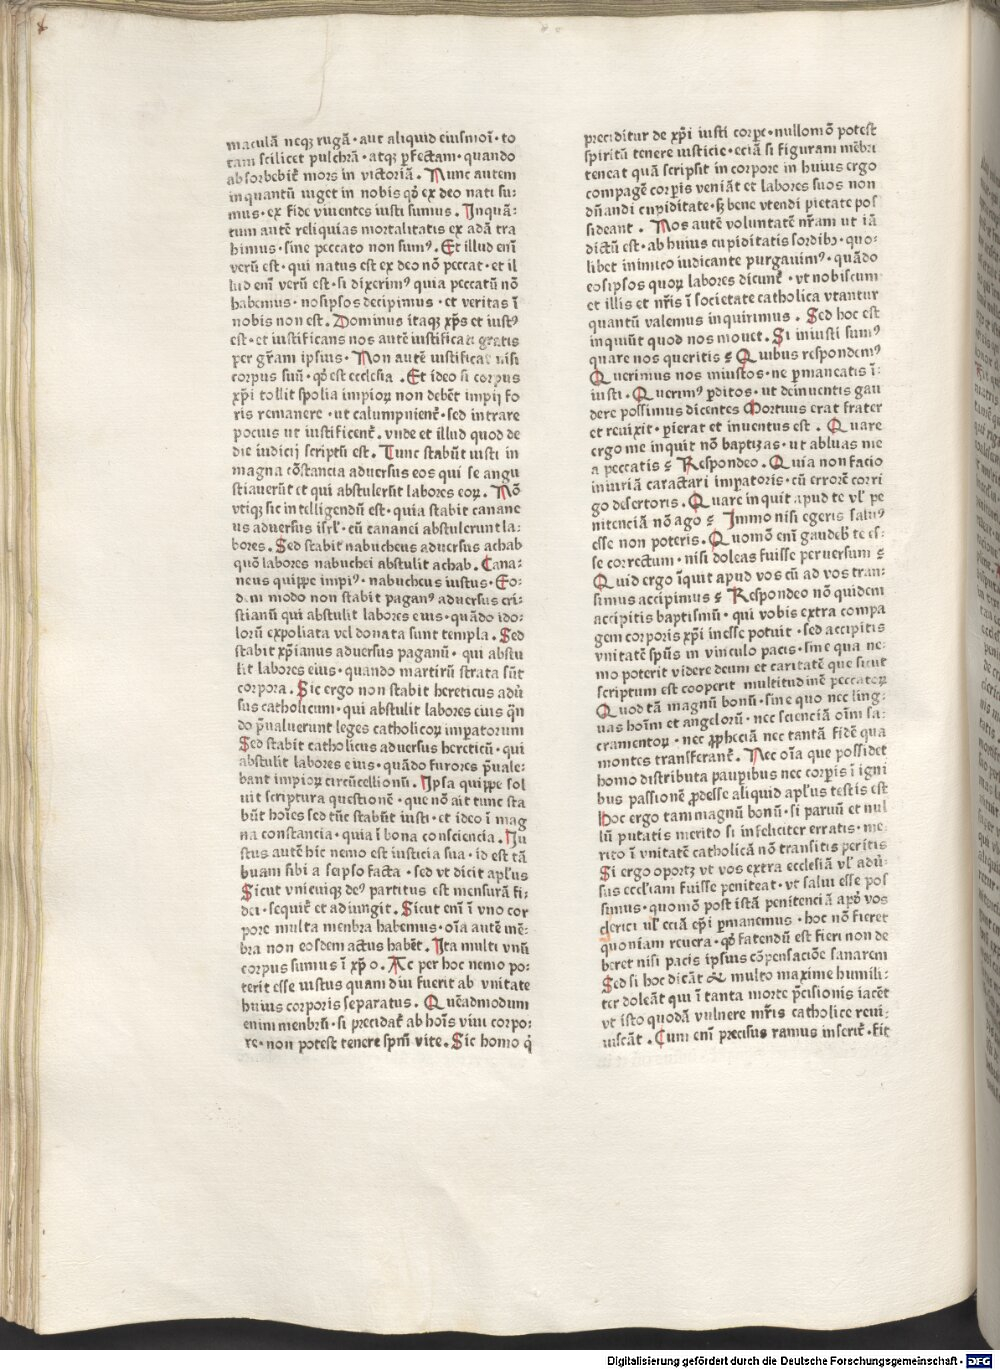 maculā neqʒ rugā · aut aliquid eiusmōi · to
tam scilicet pulchrā · atqʒ ꝑfectam · quando
absorbebit᷑ mors in victoriā . Nunc autem
inquantū viget in nobis qd̓ ex deo nati su-
mus · ex fide viuentes iusti sumus . Inquā-
tum autē reliquias mortalitatis ex adā tra
himus · sine peccato non sumꝰ . Et illud enī
verū est · qui natus est ex deo nō peccat · et il
lud enī verū est · si dixerimꝰ quia peccatū nō
habemus · nosipsos decipimus · et veritas ī
nobis non est . Dominus itaqʒ xp̄s et iustꝰ
est · et iustificans nos autē iustificati gratis
per gr̄am ipsius · Non autē iustificat nisi
corpus suū · qd̓ est ecclesia . Et ideo si corpus
xp̄i tollit spolia impioꝝ non debēt impij fo
ris remanere · ut calumpnient᷑ · sed intrare
pocius ut iustificent᷑ . vnde et illud quod de
die iudicij scriptū est . Tunc stabūt iusti in
magna cōstancia aduersus eos qui se angu
stiauerūt et qui abstulerūt labores eoꝝ . Nō
vtiqʒ sic intelligendū est · quia stabit canane
us aduersus isrl̄ · cū cananei abstulerunt la-
bores . Sed stabit nabucheus aduersus achab
quō labores nabuchei abstulit achab . Cana-
neus quippe impiꝰ · nabucheus iustus . Eo-
dem modo non stabit paganꝰ aduersus cri-
stianū qui abstulit labores eius · quādo ido-
lorū expoliata vel donata sunt templa . Sed
stabit xp̄ianus aduersus paganū · qui abstu
lit labores eius · quando martirū strata sūt
corpora . Sic ergo non stabit hereticus adū
sus catholicum · qui abstulit labores eius qn̄
do p̄ualuerunt leges catholicoꝝ imꝑatorum
Sed stabit catholicus aduersus hereticū · qui
abstulit labores eius · quādo furores p̄uale-
bant impioꝝ circūcellionū . Ipsa quippe sol
uit scriptura questionē · que nō ait tunc sta
būt hoīes sed tūc stabūt iusti · et ideo ī mag
na constancia · quia ī bona consciencia . Iu
stus autē hic nemo est iusticia sua · id est tā
quam sibi a seipso facta · sed vt dicit apl̄us
Sicut vnicuiqʒ deꝰ partitus est mensurā fi-
dei · sequit᷑ et adiungit . Sicut enī ī vno cor
pore multa menbra habemus · oīa autē mē-
bra non eosdem actus habēt . Ita multi vnū
corpus sumus ī xp̄o . Ac per hoc nemo po-
terit esse iustus quam diu fuerit ab vnitate
huius corporis separatus . Quēadmodum
enim menbrū · si precidat᷑ ab hoīs viui corpo-
re · non potest tenere spm̄ vite . Sic homo q̇
preciditur de xp̄i iusti corꝑe · nullomō potest
spiritū tenere iusticie · eciā si figuram mēbri
teneat quā scripsit in corpore in huius ergo
compagē corꝑis veniāt et labores suos non
dn̄andi cupiditate · sʒ bene vtendi pietate pos
sideant . Nos autē voluntatē nr̄am ut iā
dictū est · ab huius cupiditatis sordibʒ · quo-
libet inimico iudicante purgauimꝰ · quādo
eosipsos quoꝝ labores dicunt᷑ · vt nobiscum
et illis et nr̄is ī societate catholica vtantur
quantū valemus inquirimus . Sed hoc est
inquiūt quod nos mouet . Si iniusti sumꝰ
quare nos queritis ⸮ Quibus respondemꝰ
Querimus nos iniustos · ne ꝑmaneatis ī-
iusti . Querimꝰ ꝑditos · ut deinuentis gau
dere possimus dicentes Mortuus erat frater
et reuixit · ꝑierat et inuentus est . Quare
ergo me inquit nō baptizas · ut abluas me
a peccatis ⸮ Respondeo . Quia non facio
iniuriā caractari imꝑatoris · cū errorē corri
go desertoris . Quare inquit apud te vl̓ pe
nitenciā nō ago ⸮ Immo nisi egeris saluꝰ
esse non poteris . Quomō enī gaudeb̓ te es-
se correctum · nisi doleas fuisse peruersum ⸮
Quid ergo īquit apud vos cū ad vos tran-
simus accipimus ⸮ Respondeo nō quidem
accipitis baptismū · qui vobis extra compa
gem corporis xp̄i inesse potuit · sed accipitis
vnitatē spūs in vinculo pacis · sine qua ne-
mo poterit videre deum et caritatē que sicut
scriptum est cooperit multitudinē peccatoꝝ
Quod tā magnū bonū · sine quo nec ling-
uas hoīm et angelorū · nec scienciā oīm sa-
cramentoꝝ · nec ꝓpheciā nec tantā fidē qua
montes transferant᷑ . Nec oīa que possidet
homo distributa pauꝑibus nec corꝑis ī igni
bus passionē ꝓdesse aliquid apl̄us testis est
Hoc ergo tam magnū bonū · si paruū et nul
lū putatis merito si infeliciter erratis · me-
rito ī vnitatē catholicā nō transitis peritis
Si ergo oportʒ vt vos extra ecclesiā vl̓ adū-
sus eccl̄iam fuisse peniteat · vt salui esse pos
simus · quomō post istā penitenciā apd̓ vos
clerici ul̓ eciā ep̄i ꝑmanemus · hoc nō fieret
quoniam reuera · qd̓ fatendū est fieri non de
beret nisi pacis ipsius cōpensacōe sanarem
Sed si hoc dicāt & multo maxime humili-
ter doleāt qui ī tanta morte p̄cisionis iacēt
vt isto quodā vulnere mr̄is catholice reui-
uiscāt . Cum enī precisus ramus inserit᷑ · fit
Digitalisierung gefördert durch die Deutsche Forschungsgemeinschaft - DFG